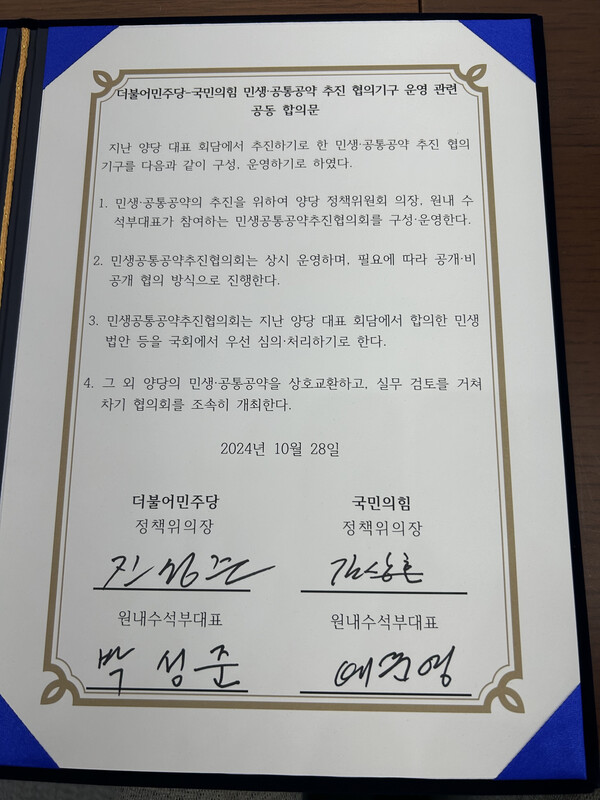 더불어민주당-국민의힘 민생·공통공약 추진 협의기구 운영 관련
공동 합의문
지난 양당 대표 회담에서 추진하기로 한 민생·공통공약 추진 협의
기구를 다음과 같이 구성, 운영하기로 하였다.
1. 민생·공통공약의 추진을 위하여 양당 정책위원회 의장, 원내 수
석부대표가 참여하는 민생공통공약추진협의회를 구성·운영한다.
2. 민생공통공약추진협의회는 상시 운영하며, 필요에 따라 공개·비
공개 협의 방식으로 진행한다.
3. 민생공통공약추진협의회는 지난 양당 대표 회담에서 합의한 민생
법안 등을 국회에서 우선 심의·처리하기로 한다.
4. 그 외 양당의 민생·공통공약을 상호교환하고, 실무 검토를 거쳐
차기 협의회를 조속히 개최한다.
2024년 10월 28일
더불어민주당 국민의힘
정책위의장 정책위의장
진성준 김상훈
원내수석부대표 원내수석부대표
박성준